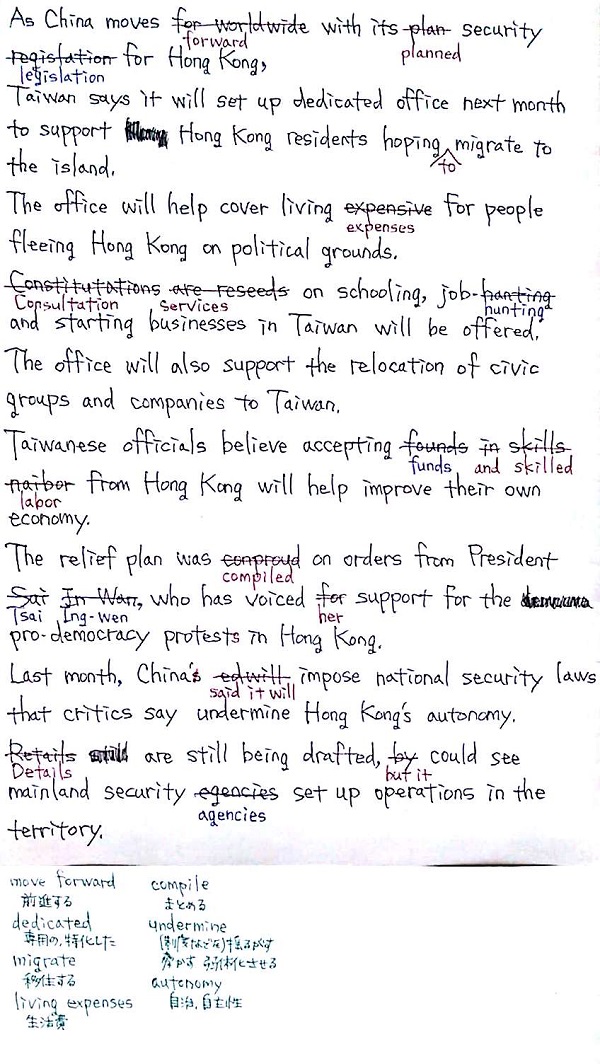 As China moves for worldwide with its plan security
forward planned
registation for Hong Kong,
legislation
Taiwan says it will set up dedicated office next month
to support Hong Kong residents hoping migrate to
to
the island.
The office will help cover living expensive for people
expenses
fleeing Hong Kong on political grounds.
Constitutations are reseeds on schooling, job-hanting
Consultation services hunting
and starting businesses in Taiwan will be offered.
The office will also support the relocation of civic
groups and companies to Taiwan.
Taiwanese officials believe accepting founds in skills
funds and skilled
naibor from Hong Kong will help improve their own
labor
economy.
The relief plan was conproud on orders from President
compiled
Sai In Wan, who has voiced for support for the
Tsai Ing-wen her
pro-democracy protests in Hong Kong.
Last month, China's edwill impose national security laws
said it will
that critics say undermine Hong Kong's autonomy.
Retails are still being drafted, by could see
Details but it
mainland security egencies set up operations in the
agencies
territory.
move forward compile
前進する まとめる
dedicated undermine
専用の, 特化した (制度などを)揺るがす
migrate 脅かす 弱体化させる
移住する autonomy
living expenses 自治, 自主性
生活費